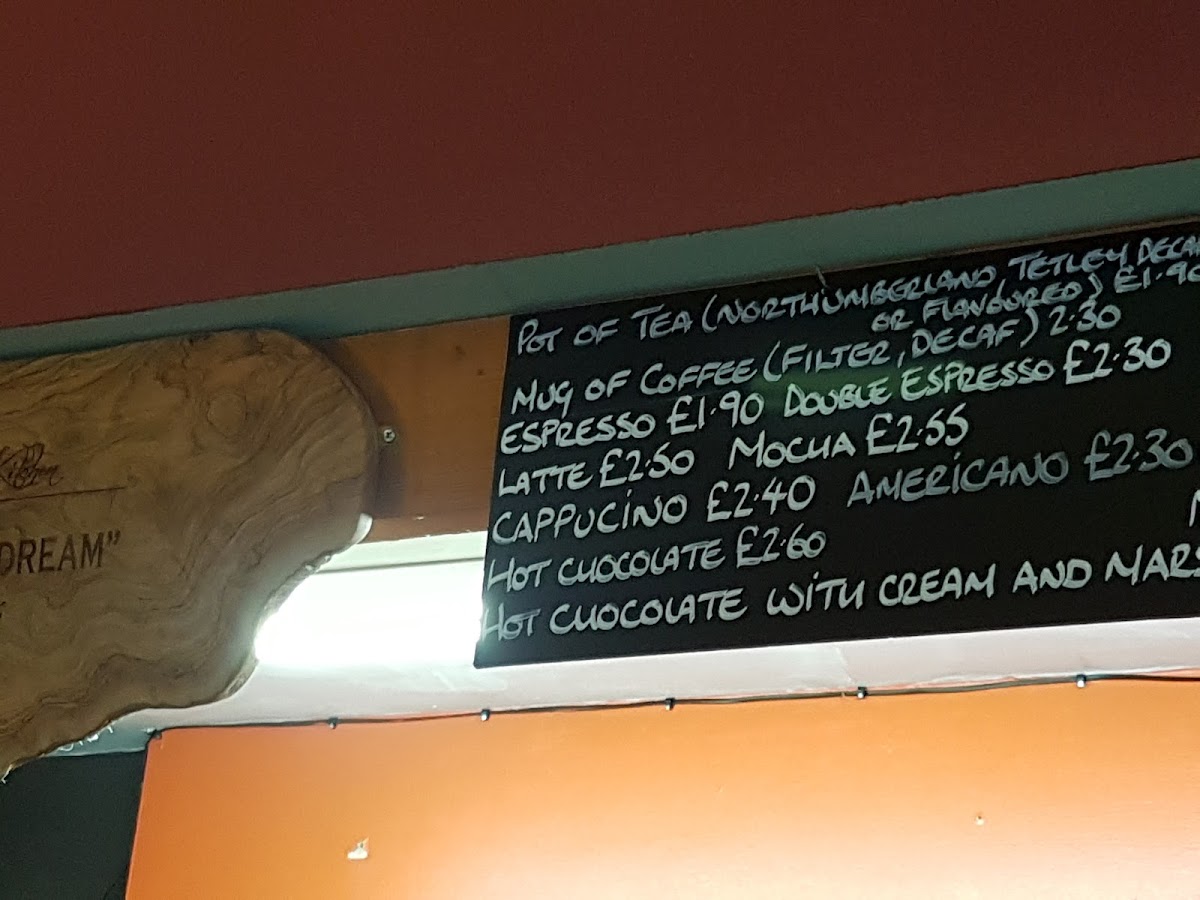 Kitchen
DREAM"
POT OF TEA (NORTHUMBERLAND TETLEY DECAF
OR FLAVOURED) £1.90
MUG OF COFFEE (FILTER, DECAF) 2.30
ESPRESSO £1.90 DOUBLE ESPRESSO £2.30
LATTE £2.50 MOCHA £2.55
CAPPUCINO £2.40 AMERICANO £2.30
HOT CHOCOLATE £2.60
HOT CHOCOLATE WITH CREAM AND MARS